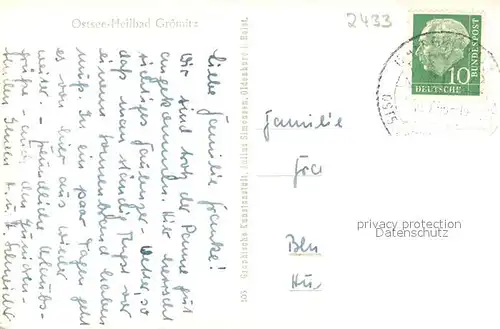 Ostsee-Heilbad Grömitz
2433
Liebe Familie Franke!
Wir sind trotz der Panne gut
angekommen. Hier herrscht
richtiges Faulenzer-Wetter, so
daß man ständig Angst vor
einem Sonnenbrand haben
muß. In ein paar Tagen geht
es von hier aus wieder
weiter. – Freundliche Urlaubs-
grüße – auch den
senden Ihnen
105 Graphische Kunstanstalt, Julius Simonsen, Oldenburg i. Holst.
10
DEUTSCHE
BUNDESPOST
Familie
Fra
Bln
privacy protection
Datenschutz